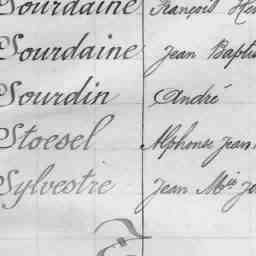 Sourdaine François
Sourdaine Jean
Sourdin André
Stoesel Alphonse Jean
Sylvestre Jean Mie